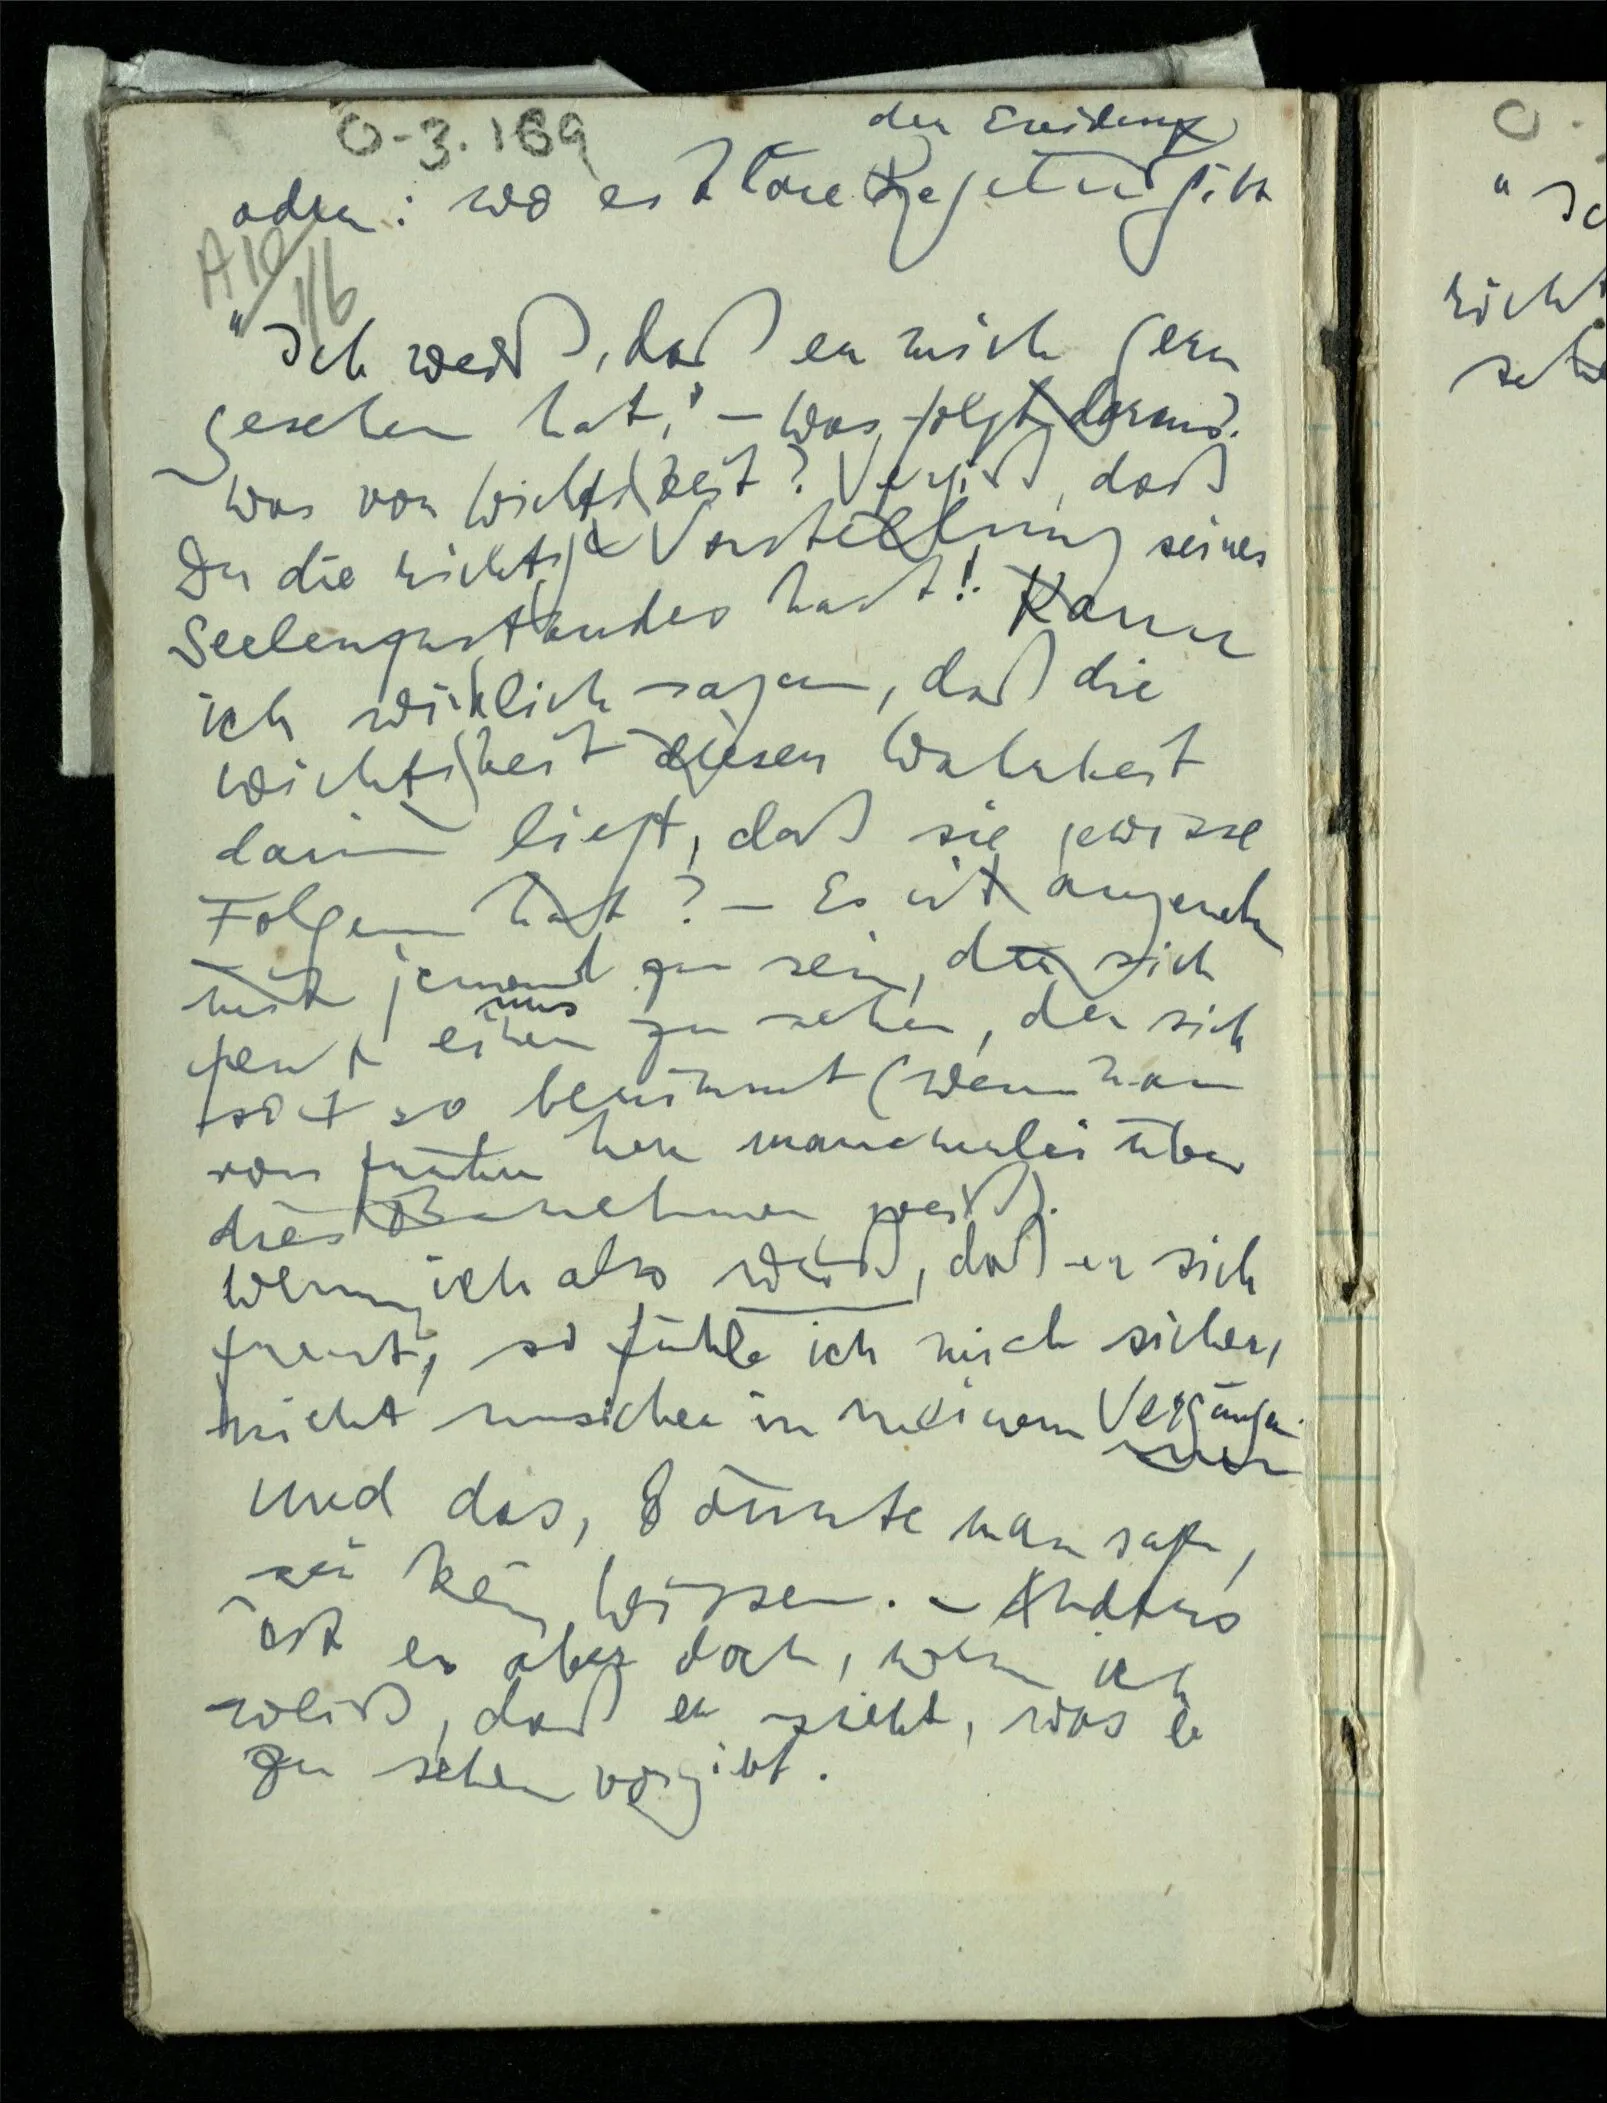 O-3.169
der Evidenz
oder: wo es klare Regeln gibt
A 10
1/6
"Ich weiß, daß er mich gern
gesehen hat." – Was folgt daraus?
Was von Wichtigkeit? Vergiß, daß
Du die richtige Vorstellung seines
Seelenzustandes hast! Kann
ich wirklich sagen, daß die
Wichtigkeit dieser Wahrheit
darin liegt, daß sie gewisse
Folgen hat? – Es ist angenehm
mit jemand zu sein, der sich
freut einen uns zu sehen, der sich
so benimmt (wenn man
von früher her mancherlei über
dies Benehmen weiß).
Wenn ich also weiß, daß er sich
freut, so fühle ich mich sicher,
nicht unsicher in meinem Vergnügen
Und das, könnte man sagen,
sei kein Wissen. – Anders
ist es aber doch, wenn ich
weiß, daß er sieht, was er
zu sehen vorgibt.
O
"Ic